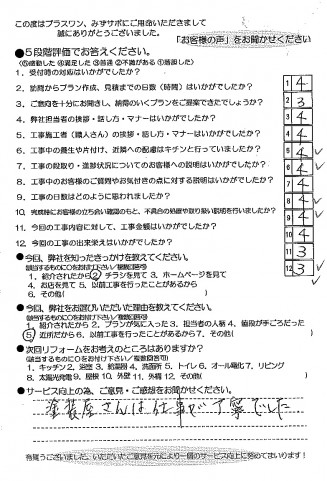 この度はプラスワン、みずサポにご用命いただきまして
誠にありがとうございました。
「お客様の声」をお聞かせください
●5段階評価でお答えください。
(⑤感動した ④満足した ③普通 ②不満がある ①落胆した)
1. 受付時の対応はいかがでしたか? 1 4
2. 訪問からプラン作成、見積までの日数(時間)はいかがでしたか? 2 4
3. ご意向を十分にお聞きし、納得のいくプランをご提案できたでしょうか? 3 3
4. 弊社担当者の挨拶・話し方・マナーはいかがでしたか? 4 4
5. 工事施工者(職人さん)の挨拶・話し方・マナーはいかがでしたか? 5 4
6. 工事中の養生や片付け、近隣への配慮はキチンと行っていましたか? 6 4
7. 工事の段取り・進捗状況についてのお客様への説明はいかがでしたか? 7 4
8. 工事中のお客様のご質問やお気付きの点に対する説明はいかがでしたか? 8 4
9. 工事の日数はどのように思われましたか? 9 4
10. 完成時にお客様の立ち会い確認のもと、不具合の処理や取り扱い説明を行いましたか? 10 4
11. 今回の工事内容に対して、工事金額はいかがでしたか? 11 3
12. 今回の工事の出来栄えはいかがでしたか? 12 3
●今回、弊社を知ったきっかけを教えてください。
(該当するものに○をお付け下さい/複数回答可)
1. 紹介されたから 2. チラシを見て 3. ホームページを見て
4. お店を見て 5. 以前工事を行ったことがあるから
6. その他(
●今回、弊社をお選びいただいた理由を教えてください。
(該当するものに○をお付け下さい/複数回答可)
1. 紹介されたから 2. プランが気に入った 3. 担当者の人柄 4. 値段が手ごろだった
5. 近所だから 6. 以前工事を行ったことがあるから 7. その他(
●次回リフォームをお考えのところはありますか?
(該当するものに○をお付け下さい/複数回答可)
1. キッチン 2. 浴室 3. 給湯器 4. 洗面所 5. トイレ 6. オール電化 7. リビング
8. 太陽光発電 9. 屋根 10. 外壁 11. 外構 12. その他(
●サービス向上の為、ご意見・ご感想をお聞かせください。
塗装屋さんは仕事が丁寧でした
有難うございました。いただいたご意見を元により一層のサービス向上に努めてまいります!